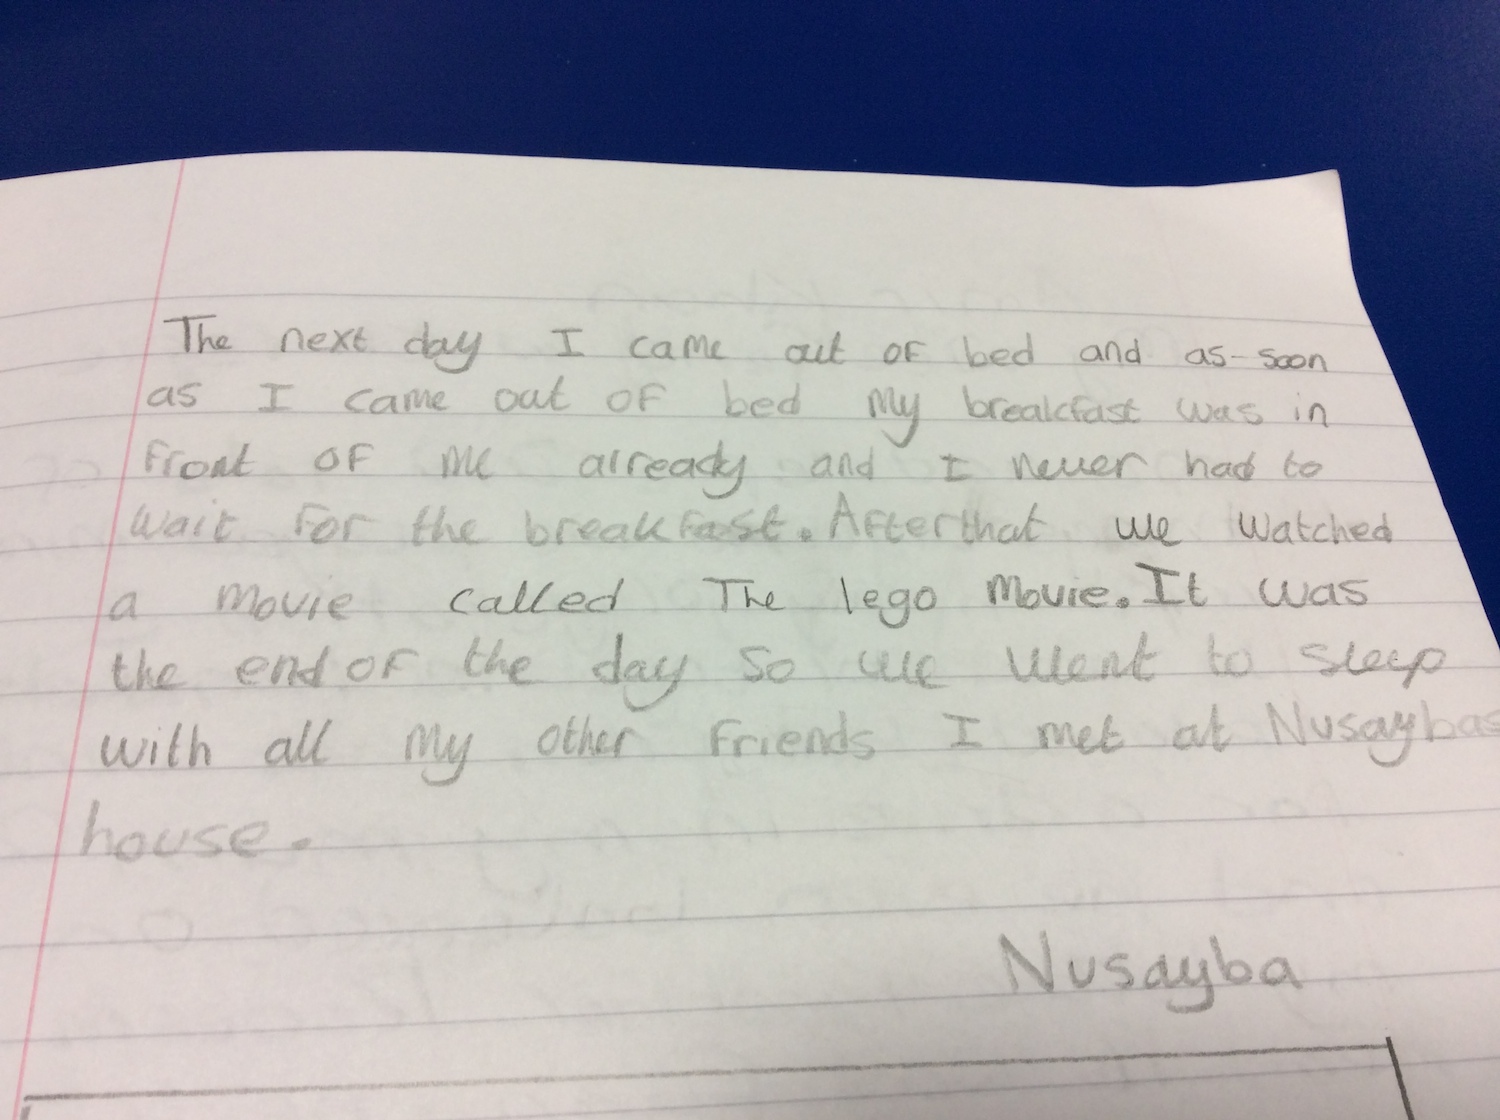 The next day I came out of bed and as-soon
as I came out of bed my breakfast was in
front of me already and I never had to
wait for the breakfast. Afterthat we watched
a movie called The lego Movie. It was
the end of the day so we went to sleep
with all my other friends I met at Nusaybas
house.
Nusayba